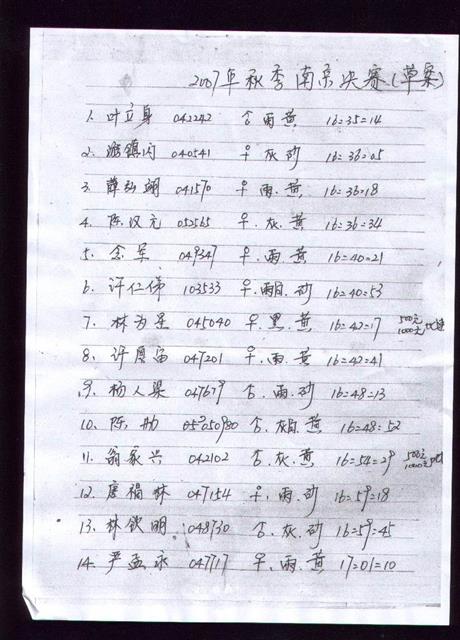 2007年秋季南京决赛(草案)
1. 叶立身 042242 合 雨 黄 16=35=14
2. 镇闪 040541 ♀ 灰 砂 16=36=05
3. 薛弘翔 041570 ♀. 雨. 黄 16=36=18
4. 陈汉元 052565 ♀. 灰. 黄 16=36=34
5. 念军 049347 ♀. 雨. 黄 16=40=21
6. 许仁俤 103533 ♀. 雨白. 砂 16=40=53
7. 林为星 045040 ♀. 黑. 黄 16=42=17 500元 1000元
8. 许 047201 ♀. 雨. 黄 16=42=41
9. 杨人梁 047679 合. 雨. 砂 16=48=13
10. 陈 050980 合. 灰白. 黄 16=48=52
11. 翁家兴 042102 合. 灰. 黄 16=54=29 500元 1000元
12. 唐福林 047154 ♀. 雨. 砂 16=59=18
13. 林钦明 048730 合. 灰. 砂 16=59=45
14. 严孟永 047717 ♀. 雨. 黄 17=01=10